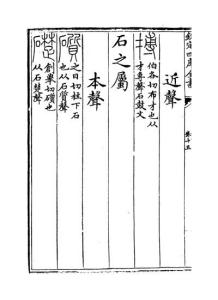 欽定四庫全書
卷十五
近聲
搏
伯各切布才也从
才尃聲石鼓文
石之屬
本聲
礩
之日切柱下石
也从石質聲
礎
創舉切礩也
从石楚聲